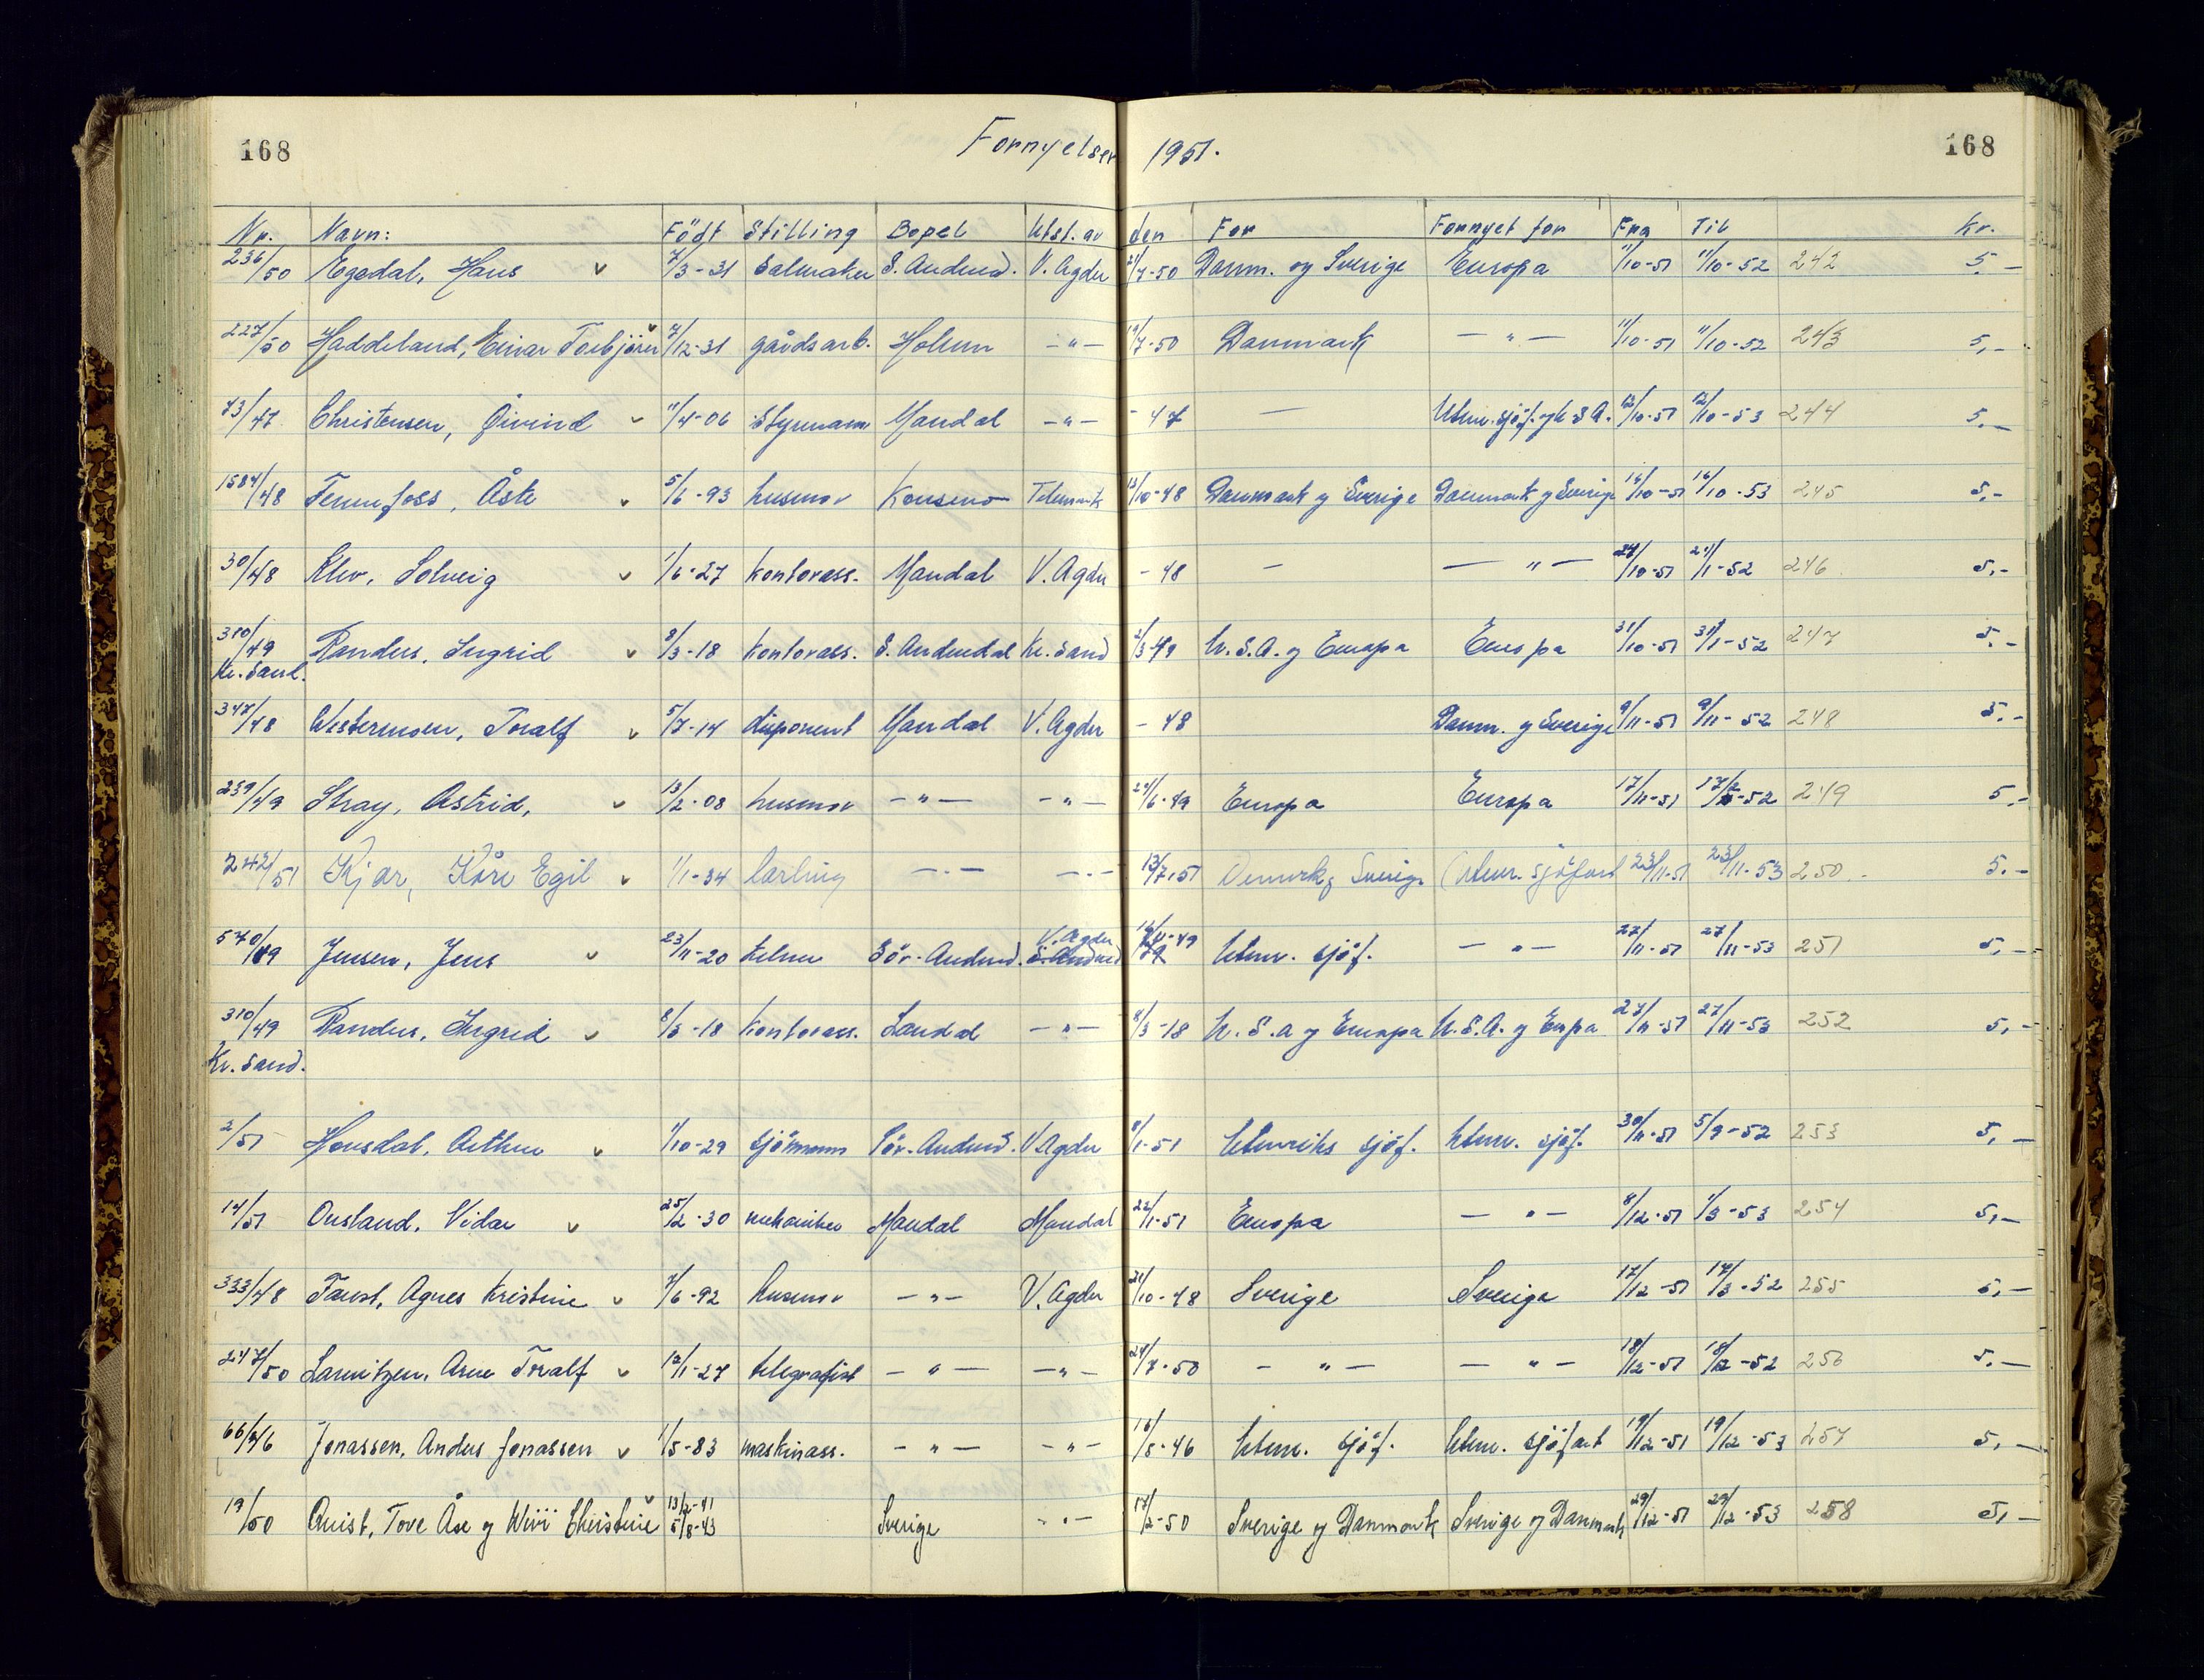 168 Fornyelser 1951. 168
Nr. Navn: Födt Stilling Bopel Utst. av den For Fornyet for Fra Til Kr.
236/50 Egedal, Hans v 7/3-31 Salmaker S. Audned. V. Agder 21/7-50 Danm. og Sverige Europa 11/10-51 11/10-52 242 5.-
227/50 Haddeland, Einar Torbjörn v 7/12-31 gårdsarb. Holum -"- 19/7-50 Danmark -"- 11/10-51 11/10-52 243 5,-
73/47 Christensen, Öivind v 11/4-06 Styrmann Mandal -"- - 47 - Utenr. sjöf. og U S A. 12/10-51 12/10-53 244 5.-
1584/48 Fennefoss, Åste v 5/6-93 husmor Konsmo Telemark 13/10-48 Danmark og Sverige Danmark og Sverige 16/10-51 16/10-53 245 5,-
30/48 Klev, Solveig v 1/6-27 Kontorass. Mandal V. Agder - 48 - -"- 24/10-51 24/1-52 246 5,-
310/49 Randers, Ingrid v 8/3-18 Kontorass. S. Audnedal Kr. Sand 2/3-49 U.S.A. og Europa Europa 31/10-51 31/1-52 247 5.-
Kr. Sand.
347/48 Westermoen, Toralf v 5/7-14 disponent Mandal V. Agder - 48 Danm. og Sverige 9/11-51 9/11-52 248 5.-
239/49 Stray, Astrid, v 13/2-08 husmor -"- -"- 24/6-49 Europa Europa 17/11-51 17/2-52 249 5,-
242/51 Kjær, Kåre Egil v 1/1-34 lærling -"- -"- 13/7-51 Danmrk og Sverige Utenr. sjöfart 23/11-51 23/11-53 250.- 5.-
V. Agder
570/49 Jensen, Jens v 23/11-20 kelner Sör-Audned. S. Audned 11-49 Utenr. sjöf. -"- 27/11-51 27/11-53 251 5,-
310/49 Randers, Ingrid v 8/3-18 Kontorass. Laudal -"- 8/3-18 U.S.A og Europa U.S.A. og Eurpa 27/11-51 27/11-53 252 5,-
Kr. Sand.
2/51 Housdal, Arthur v 1/10-29 sjömann Sör-Audned. V. Agder 8/1-51 Utenriks sjöf. Utenr. sjöf. 30/11-51 5/9-52 253 5,-
14/51 Ousland, Vidar v 25/2-30 mekaniker Mandal Mandal 22/1-51 Europa -"- 8/12-51 1/3-53 254 5,-
333/48 Faust, Agnes Kristine v 7/6-92 husmor -"- V. Agder 21/10-48 Sverige Sverige 17/12-51 17/3-52 255 5,-
247/50 Lauritzen, Arne Toralf v 12/1-27 telegrafist -"- -"- 24/7-50 -"- -"- 18/12-51 18/12-52 256 5.-
66/46 Jonassen, Anders Jonassen v 1/5-83 maskinass. -"- -"- 16/5-46 Utenr. sjöf. Utenr. sjöfart 19/12-51 19/12-53 257 5,-
19/50 Quist, Tove Åse og Wivi Christine v 13/2-41 5/8-43 Sverige -"- 17/2-50 Sverige og Danmark Sverige og Danmark 29/12-51 29/12-53 258 5,-